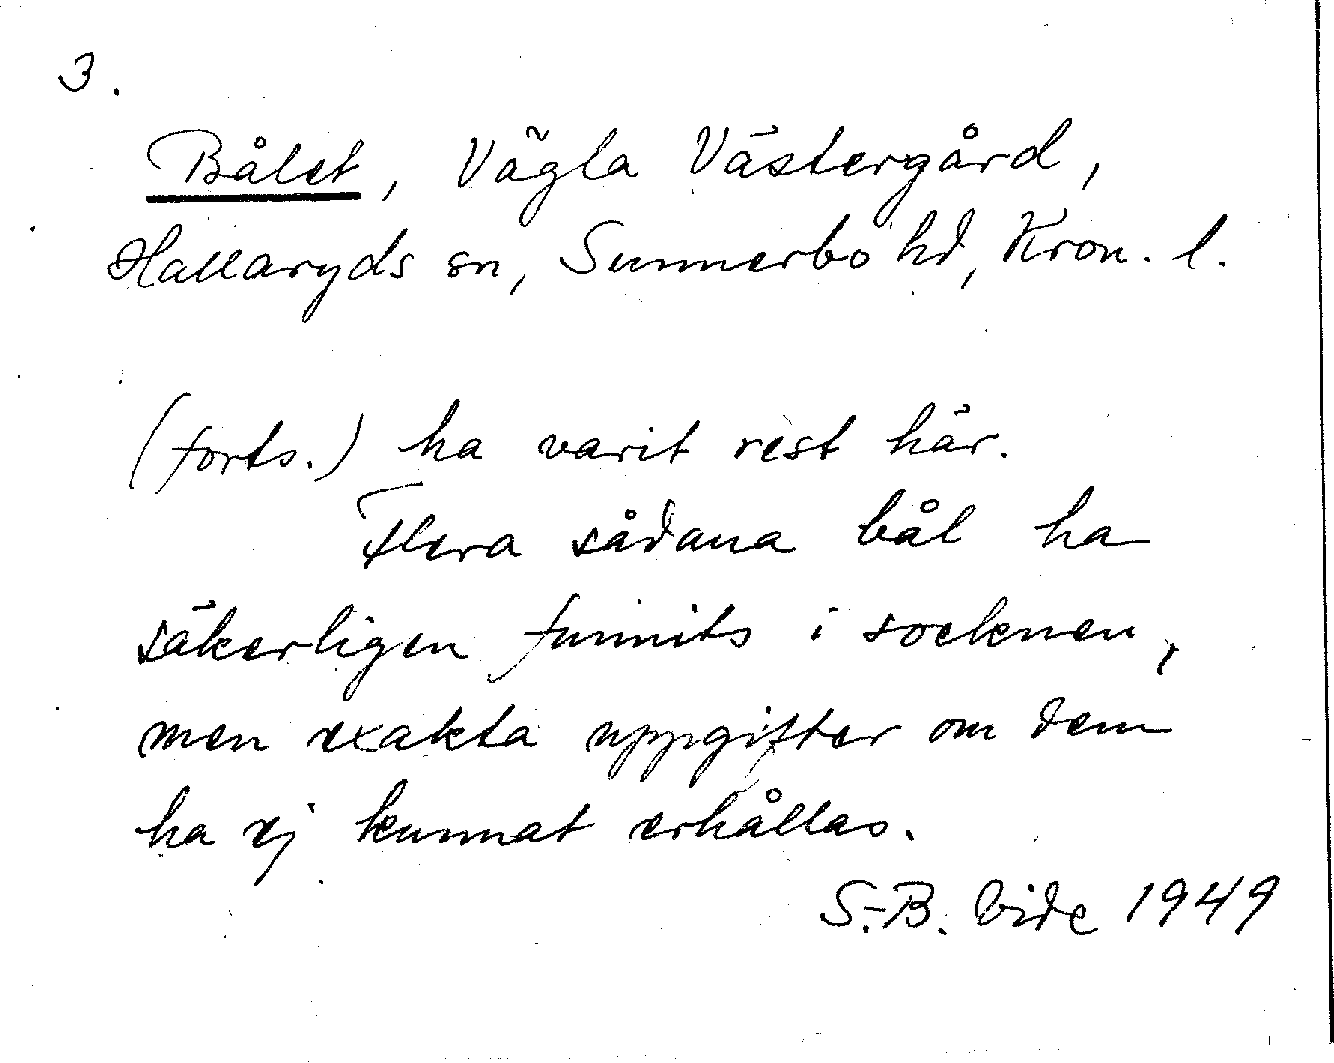 3.
Bålet, Vägla Västergård,
Hallaryds sn, Sunnerbo hd, Kron. l.
(forts.) ha varit rest här.
Flera sådana bål ha
säkerligen funnits i socknen,
men exakta uppgifter om dem
ha ej kunnat erhållas.
S.-B. Vide 1949